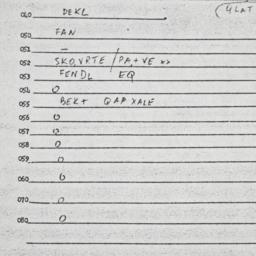 040 DEKL (4 LAT
050 FAN
051 –
052 SKO, VRTE / PA, + VE
053 FENDL EQ
054 0
055 BEKT QAP XALE
056 0
057 0
058 0
059 0
060 0
070 0
080 0